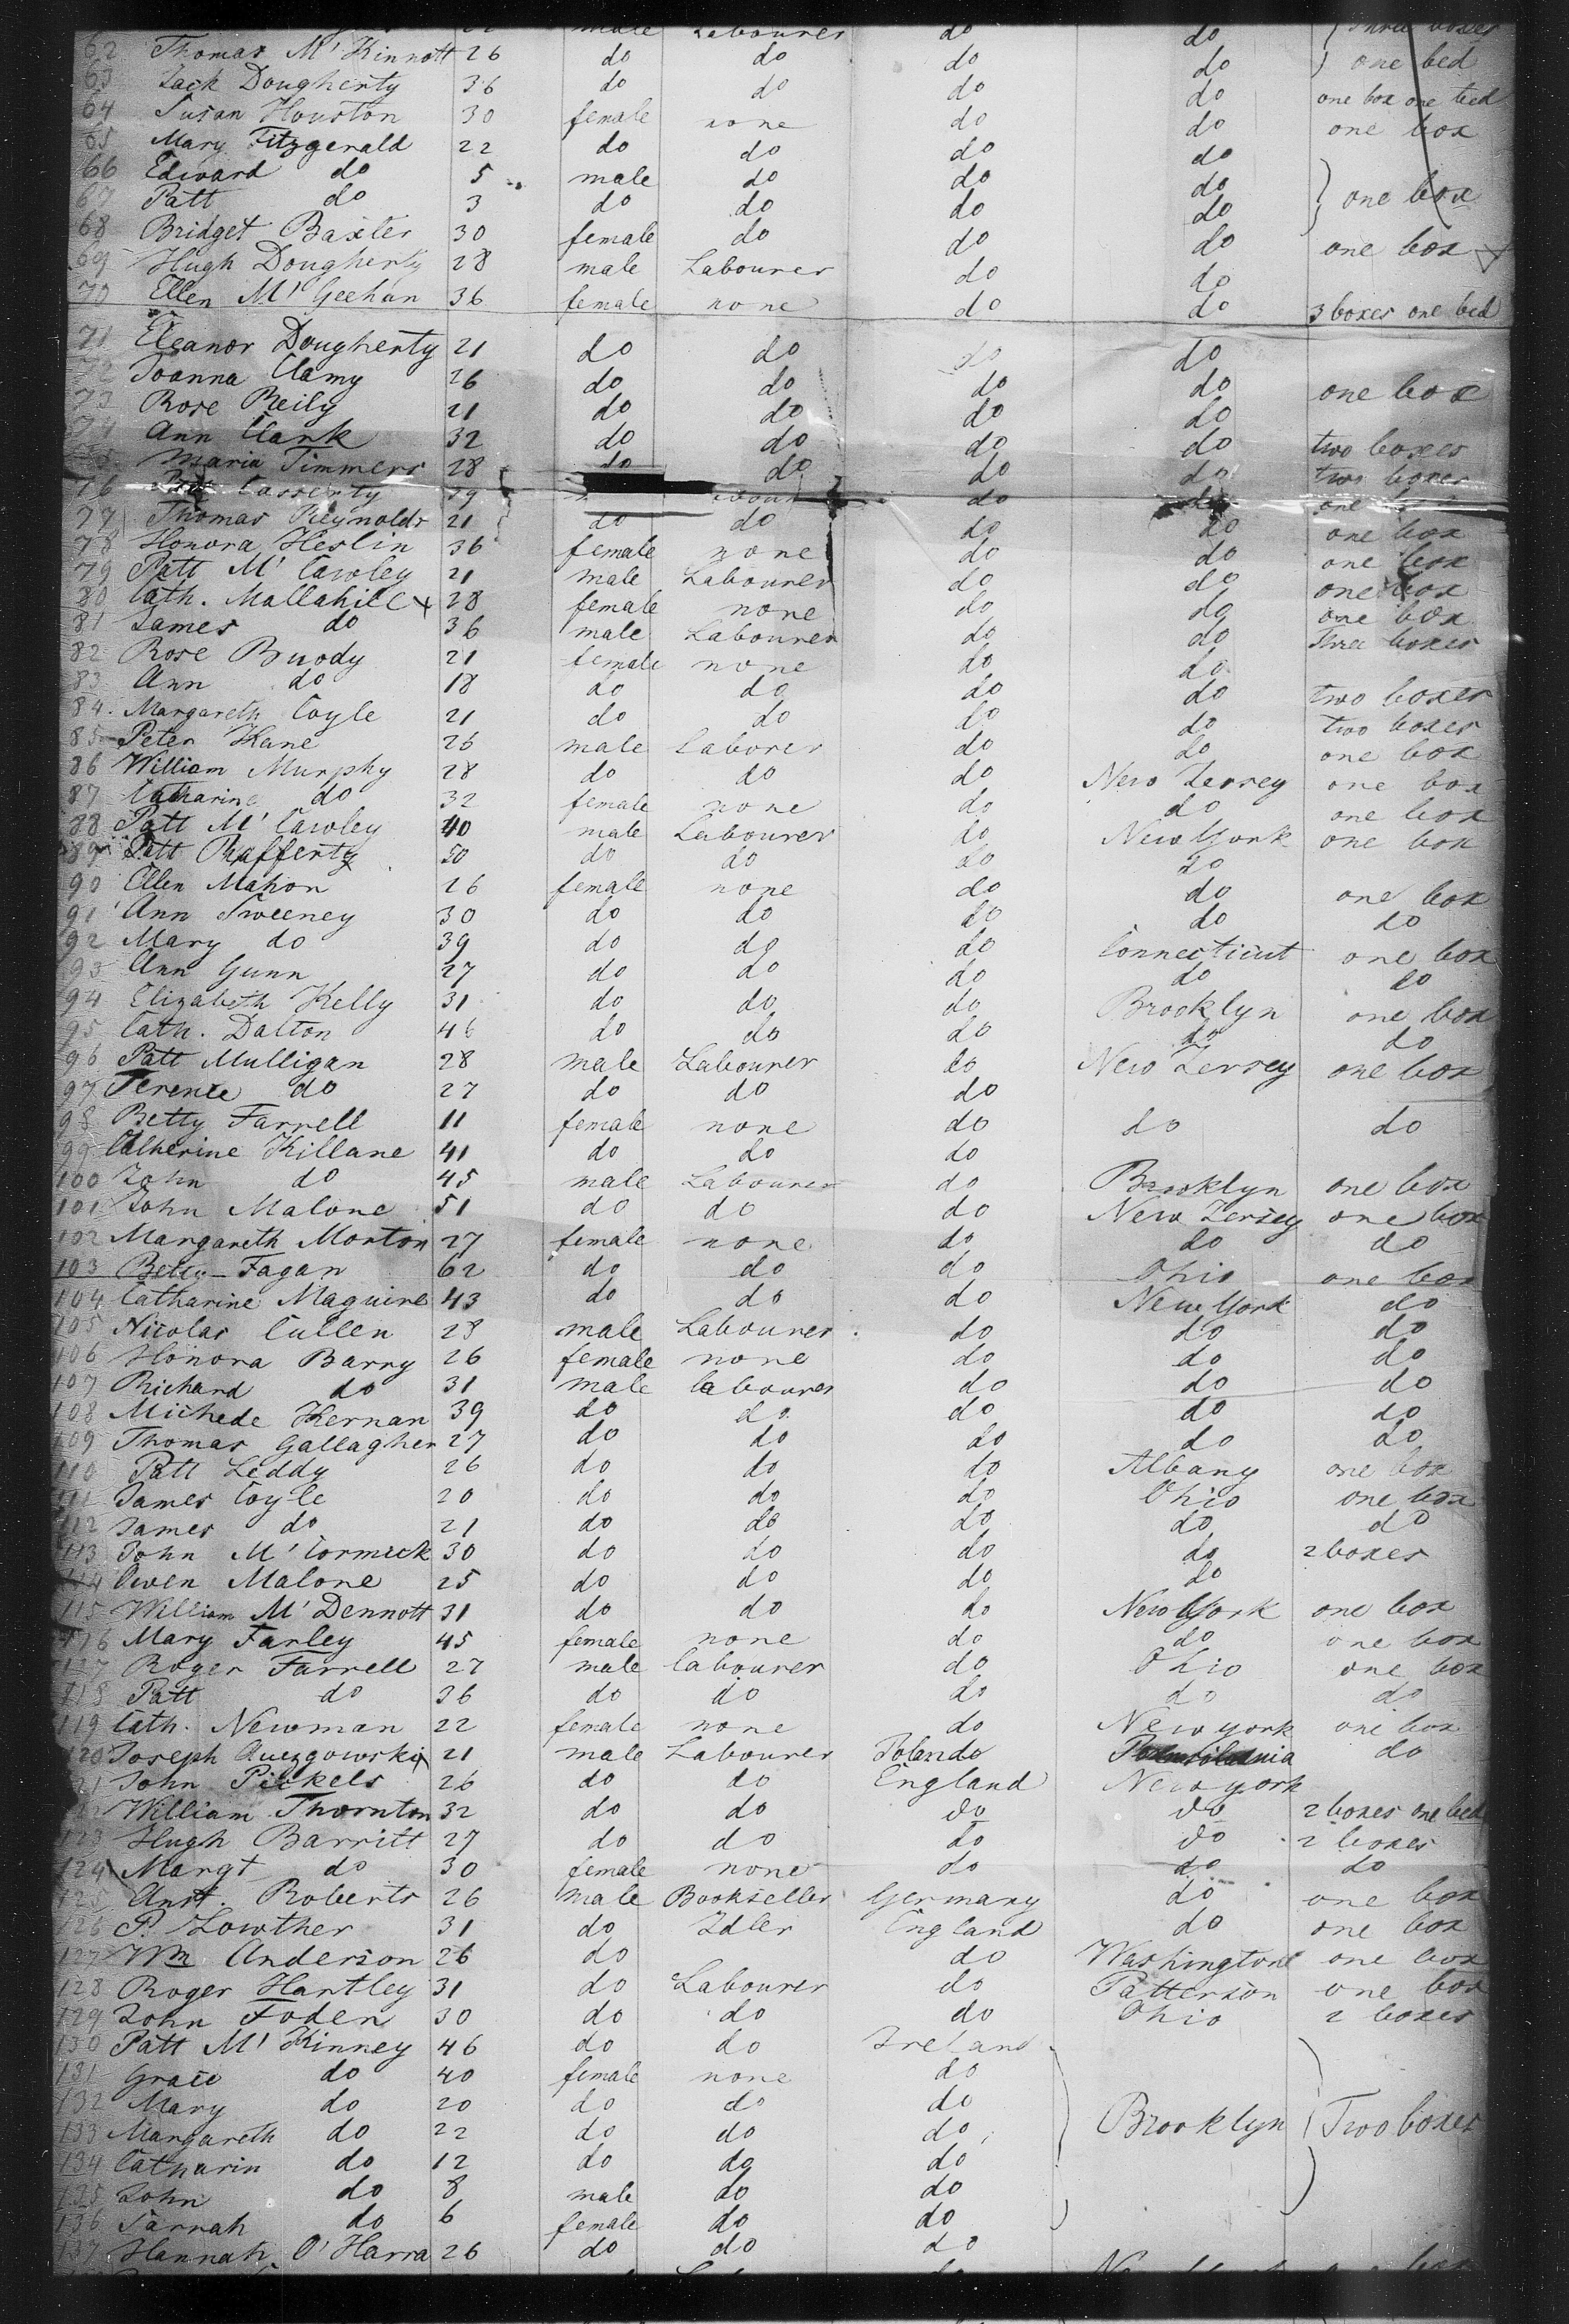 male Labourer do do } Three boxes
62 Thomas M' Kinnott 26 do do do do } one bed
63 Jack Dougherty 36 do do do do one box one bed
64 Susan Houston 30 female none do do one box
65 Mary Fitzgerald 22 do do do do
66 Edward do 5 male do do do } one box
67 Patt do 3 do do do do
68 Bridget Baxter 30 female do do do one box
69 Hugh Dougherty 28 male Labourer do do
70 Ellen M' Geehan 36 female none do do 3 boxes one bed
71 Eleanor Dougherty 21 do do do do
72 Joanna Clamy 26 do do do do one box
73 Rose Reily 21 do do do do
74 Ann Clark 32 do do do do two boxes
75 Maria Timmers 28 do do do do two boxes
76 Casserty 19 do one
77 Thomas Reynolds 21 do do do do one box
78 Honora Heslin 36 female none do do one box
79 Patt M' Cawley 21 male Labourer do do one box
80 Cath. Mallahill x 28 female none do do one box
81 James do 36 male Labourer do do Three boxes
82 Rose Bruody 21 female none do do
83 Ann do 18 do do do do two boxes
84. Margareth Coyle 21 do do do do two boxes
85 Peter Kane 26 male Laborer do do one box
86 William Murphy 28 do do do New Jersey one box
87 Catharine do 32 female none do do one box
88 Patt M' Cawley 40 male Labourer do New York one box
89 Patt Rafferty 50 do do do do
90 Ellen Mahon 26 female none do do one box
91 Ann Sweeney 30 do do do do do
92 Mary do 39 do do do Connecticut one box
93 Ann Gunn 27 do do do do do
94 Elizabeth Kelly 31 do do do Brooklyn one box
95 Cath. Dalton 46 do do do do do
96 Patt Mulligan 28 male Labourer do New Jersey one box
97 Terence do 27 do do do
98 Betty Farrell 11 female none do do do
99 Catherine Killane 41 do do do
100 John do 45 male Labourer do Brooklyn one box
101 John Malone 51 do do do New Jersey one box
102 Margareth Morton 27 female none do do do
103 Betty Fagan 62 do do do Ohio one box
104 Catharine Maguire 43 do do do New York do
105 Nicolas Cullen 28 male Labourer do do do
106 Honora Barry 26 female none do do do
107 Richard do 31 male labourer do do do
108 Michede Kernan 39 do do do do do
109 Thomas Gallagher 27 do do do do do
110 Patt Leddy 26 do do do Albany one box
111 James Coyle 20 do do do Ohio one box
112 James do 21 do do do do do
113 John M' Cormick 30 do do do do 2 boxes
114 Owen Malone 25 do do do do
115 William M' Dennott 31 do do do New York one box
116 Mary Farley 45 female none do do one box
117 Roger Farrell 27 male labourer do Ohio one box
118 Patt do 36 do do do do do
119 Cath. Newman 22 female none do New york one box
120 Joseph Quezgowski x 21 male Labourer Polando do
121 John Pickels 26 do do England New york
122 William Thornton 32 do do do do 2 boxes one bed
123 Hugh Barritt 27 do do do do 2 boxes
124 Margt do 30 female none do do do
125 Anst. Roberts 26 male Bookseller Germany do one box
126 P. Lowther 31 do Idler England do one box
127 Wm Anderson 26 do do Washington one box
128 Roger Hartley 31 do Labourer do Patterson one box
129 John Foden 30 do do do Ohio 2 boxes
130 Patt M' Kinney 46 do do Ireland
131 Grace do 40 female none do
132 Mary do 20 do do do
133 Margareth do 22 do do do } Brooklyn } Two boxes
134 Catharin do 12 do do do
135 John do 8 male do do
136 Sarrah do 6 female do do
137 Hannah O' Harra 26 do do do